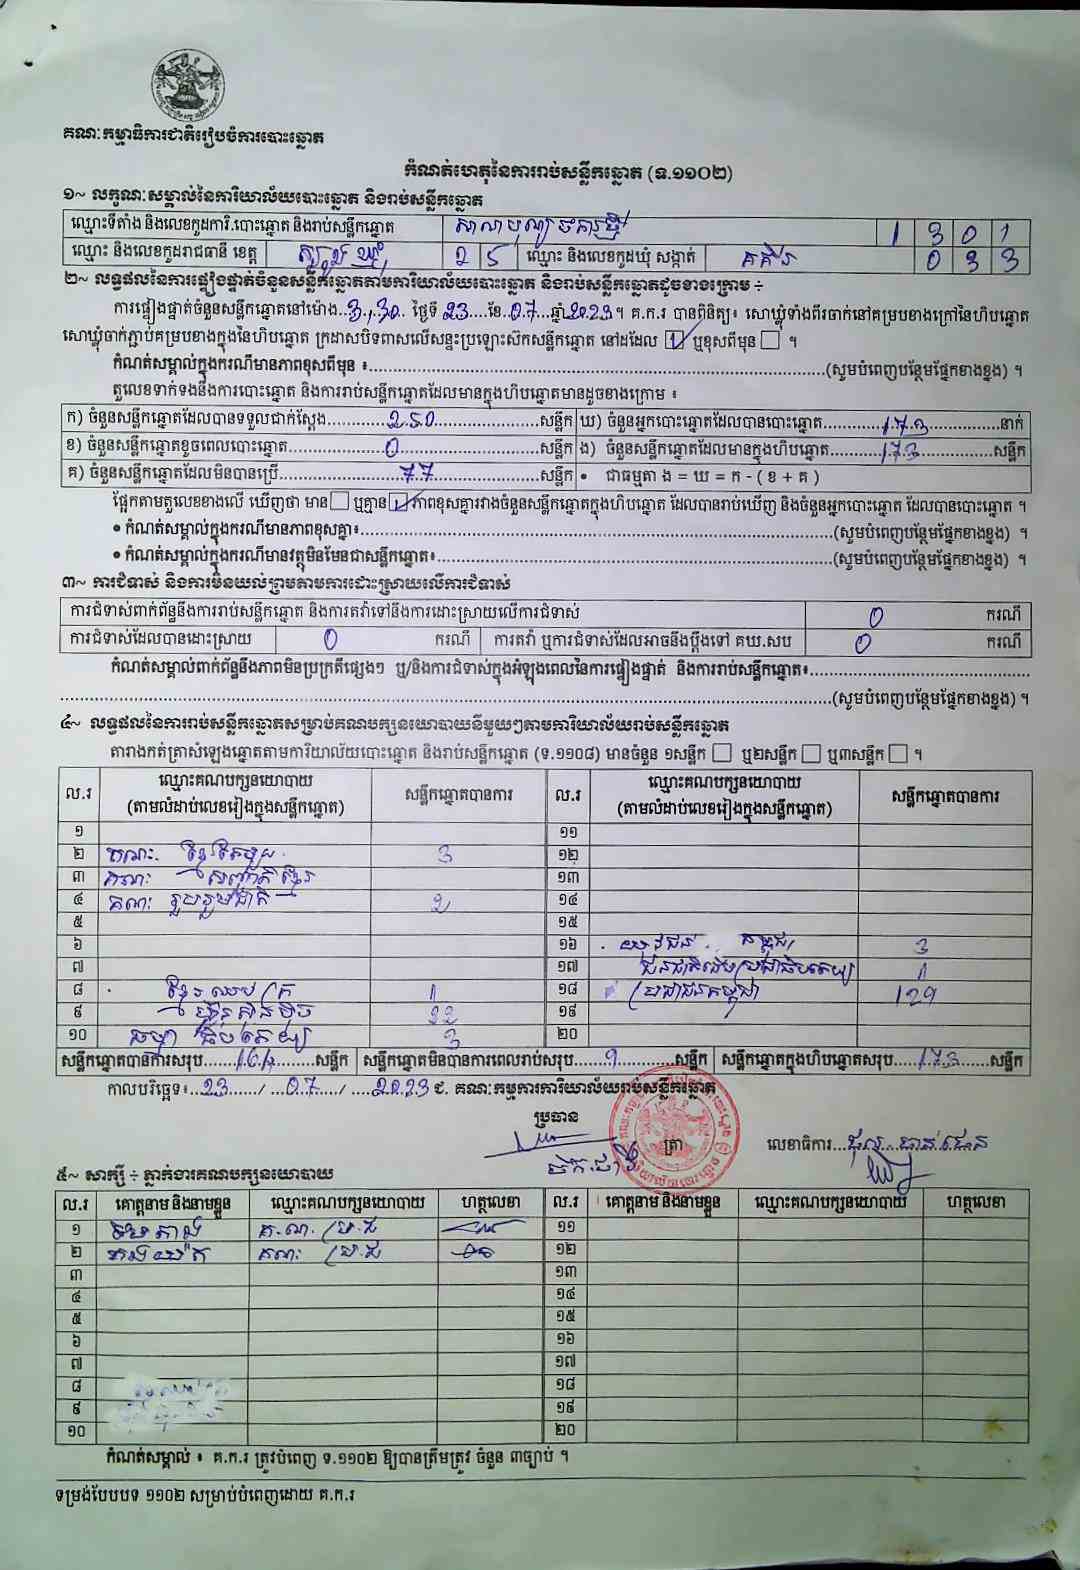 គណៈកម្មាធិការជាតិរៀបចំការបោះឆ្នោត
កំណត់ហេតុនៃការរាប់សន្លឹកឆ្នោត (ទ.១១០២)
១~ លក្ខណៈសម្គាល់នៃការិយាល័យបោះឆ្នោត និងរាប់សន្លឹកឆ្នោត
ឈ្មោះទីតាំង និងលេខកូដការិ.បោះឆ្នោត និងរាប់សន្លឹកឆ្នោត 1 3 0 1
ឈ្មោះ និងលេខកូដរាជធានី ខេត្ត ត្បូងឃ្មុំ 2 5 ឈ្មោះ និងលេខកូដឃុំ សង្កាត់ គគីរ 0 3 3
២~ លទ្ធផលនៃការផ្ទៀងផ្ទាត់ចំនួនសន្លឹកឆ្នោតតាមការិយាល័យបោះឆ្នោត និងរាប់សន្លឹកឆ្នោតដូចខាងក្រោម ÷
ការផ្ទៀងផ្ទាត់ចំនួនសន្លឹកឆ្នោតនៅម៉ោង..3,30. ថ្ងៃទី 23....ខែ.07...ឆ្នាំ 2023។ គ.ក.រ បានពិនិត្យ៖ សោឃ្លុំទាំងពីរចាក់នៅគម្របខាងក្រៅនៃហិបឆ្នោត
សោឃ្លុំចាក់ភ្ជាប់គម្របខាងក្នុងនៃហិបឆ្នោត ក្រដាសបិទពាសលើសន្ទះប្រឡោះស៊កសន្លឹកឆ្នោត នៅដដែល ☑ ឬខុសពីមុន ☐ ។
កំណត់សម្គាល់ក្នុងករណីមានភាពខុសពីមុន ៖......(សូមបំពេញបន្ថែមផ្នែកខាងខ្នង) ។
តួលេខទាក់ទងនឹងការបោះឆ្នោត និងការរាប់សន្លឹកឆ្នោតដែលមានក្នុងហិបឆ្នោតមានដូចខាងក្រោម ៖
ក) ចំនួនសន្លឹកឆ្នោតដែលបានទទួលជាក់ស្តែង......250......សន្លឹក ឃ) ចំនួនអ្នកបោះឆ្នោតដែលបានបោះឆ្នោត......173......នាក់
ខ) ចំនួនសន្លឹកឆ្នោតខូចពេលបោះឆ្នោត......0......សន្លឹក ង) ចំនួនសន្លឹកឆ្នោតដែលមានក្នុងហិបឆ្នោត......173......សន្លឹក
គ) ចំនួនសន្លឹកឆ្នោតដែលមិនបានប្រើ......77......សន្លឹក • ជាធម្មតា ង = ឃ = ក - ( ខ + គ )
ផ្អែកតាមតួលេខខាងលើ ឃើញថា មាន☐ ឬគ្មាន☑ ភាពខុសគ្នារវាងចំនួនសន្លឹកឆ្នោតក្នុងហិបឆ្នោត ដែលបានរាប់ឃើញ និងចំនួនអ្នកបោះឆ្នោត ដែលបានបោះឆ្នោត ។
• កំណត់សម្គាល់ក្នុងករណីមានភាពខុសគ្នា៖......(សូមបំពេញបន្ថែមផ្នែកខាងខ្នង) ។
• កំណត់សម្គាល់ក្នុងករណីមានវត្ថុមិនមែនជាសន្លឹកឆ្នោត៖......(សូមបំពេញបន្ថែមផ្នែកខាងខ្នង) ។
៣~ ការជំទាស់ និងការមិនយល់ព្រមតាមការដោះស្រាយលើការជំទាស់
ការជំទាស់ពាក់ព័ន្ធនឹងការរាប់សន្លឹកឆ្នោត និងការតវ៉ាទៅនឹងការដោះស្រាយលើការជំទាស់ 0 ករណី
ការជំទាស់ដែលបានដោះស្រាយ 0 ករណី ការតវ៉ា ឬការជំទាស់ដែលអាចនឹងប្តឹងទៅ គឃ.សប 0 ករណី
កំណត់សម្គាល់ពាក់ព័ន្ធនឹងភាពមិនប្រក្រតីផ្សេងៗ ឬ/និងការជំទាស់ក្នុងអំឡុងពេលនៃការផ្ទៀងផ្ទាត់ និងការរាប់សន្លឹកឆ្នោត៖......
......(សូមបំពេញបន្ថែមផ្នែកខាងខ្នង) ។
៤~ លទ្ធផលនៃការរាប់សន្លឹកឆ្នោតសម្រាប់គណបក្សនយោបាយនីមួយៗតាមការិយាល័យរាប់សន្លឹកឆ្នោត
តារាងកត់ត្រាសំឡេងឆ្នោតតាមការិយាល័យបោះឆ្នោត និងរាប់សន្លឹកឆ្នោត (ទ.១១០៨) មានចំនួន ១សន្លឹក ☐ ឬ២សន្លឹក ☐ ឬ៣សន្លឹក ☐ ។
ល.រ ឈ្មោះគណបក្សនយោបាយ (តាមលំដាប់លេខរៀងក្នុងសន្លឹកឆ្នោត) សន្លឹកឆ្នោតបានការ ល.រ ឈ្មោះគណបក្សនយោបាយ (តាមលំដាប់លេខរៀងក្នុងសន្លឹកឆ្នោត) សន្លឹកឆ្នោតបានការ
១ ១១
២ គណៈ ខ្មែរតែមួយ 3 ១២
៣ គណៈ សញ្ជាតិខ្មែរ ១៣
៤ គណៈ រួបរួមជាតិ 2 ១៤
៥ ១៥
៦ ១៦ យុវជន កម្ពុជា 3
៧ ១៧ ជនជាតិដើមប្រជាធិបតេយ្យ 1
៨ ខ្មែរឈប់ក្រ 1 ១៨ ប្រជាជនកម្ពុជា 129
៩ ហ្វ៊ុនស៊ិនប៉ិច 22 ១៩
១០ ធិបតេយ្យ 3 ២០
សន្លឹកឆ្នោតបានការសរុប...164...សន្លឹក សន្លឹកឆ្នោតមិនបានការពេលរាប់សរុប...9...សន្លឹក សន្លឹកឆ្នោតក្នុងហិបឆ្នោតសរុប....173...សន្លឹក
កាលបរិច្ឆេទ៖...23....../...07..../....2023 ជ. គណៈកម្មការការិយាល័យរាប់សន្លឹកឆ្នោត
ប្រធាន
ត្រា
លេខាធិការ...
៥~ សាក្សី ÷ ភ្នាក់ងារគណបក្សនយោបាយ
ល.រ គោត្តនាម និងនាមខ្លួន ឈ្មោះគណបក្សនយោបាយ ហត្ថលេខា ល.រ គោត្តនាម និងនាមខ្លួន ឈ្មោះគណបក្សនយោបាយ ហត្ថលេខា
១ គ.ណ. ប្រ.ជ ១១
២ គណៈ ប្រ.ជ ១២
៣ ១៣
៤ ១៤
៥ ១៥
៦ ១៦
៧ ១៧
៨ ១៨
៩ ១៩
១០ ២០
កំណត់សម្គាល់ ៖ គ.ក.រ ត្រូវបំពេញ ទ.១១០២ ឱ្យបានត្រឹមត្រូវ ចំនួន ៣ច្បាប់ ។
ទម្រង់បែបបទ ១១០២ សម្រាប់បំពេញដោយ គ.ក.រ